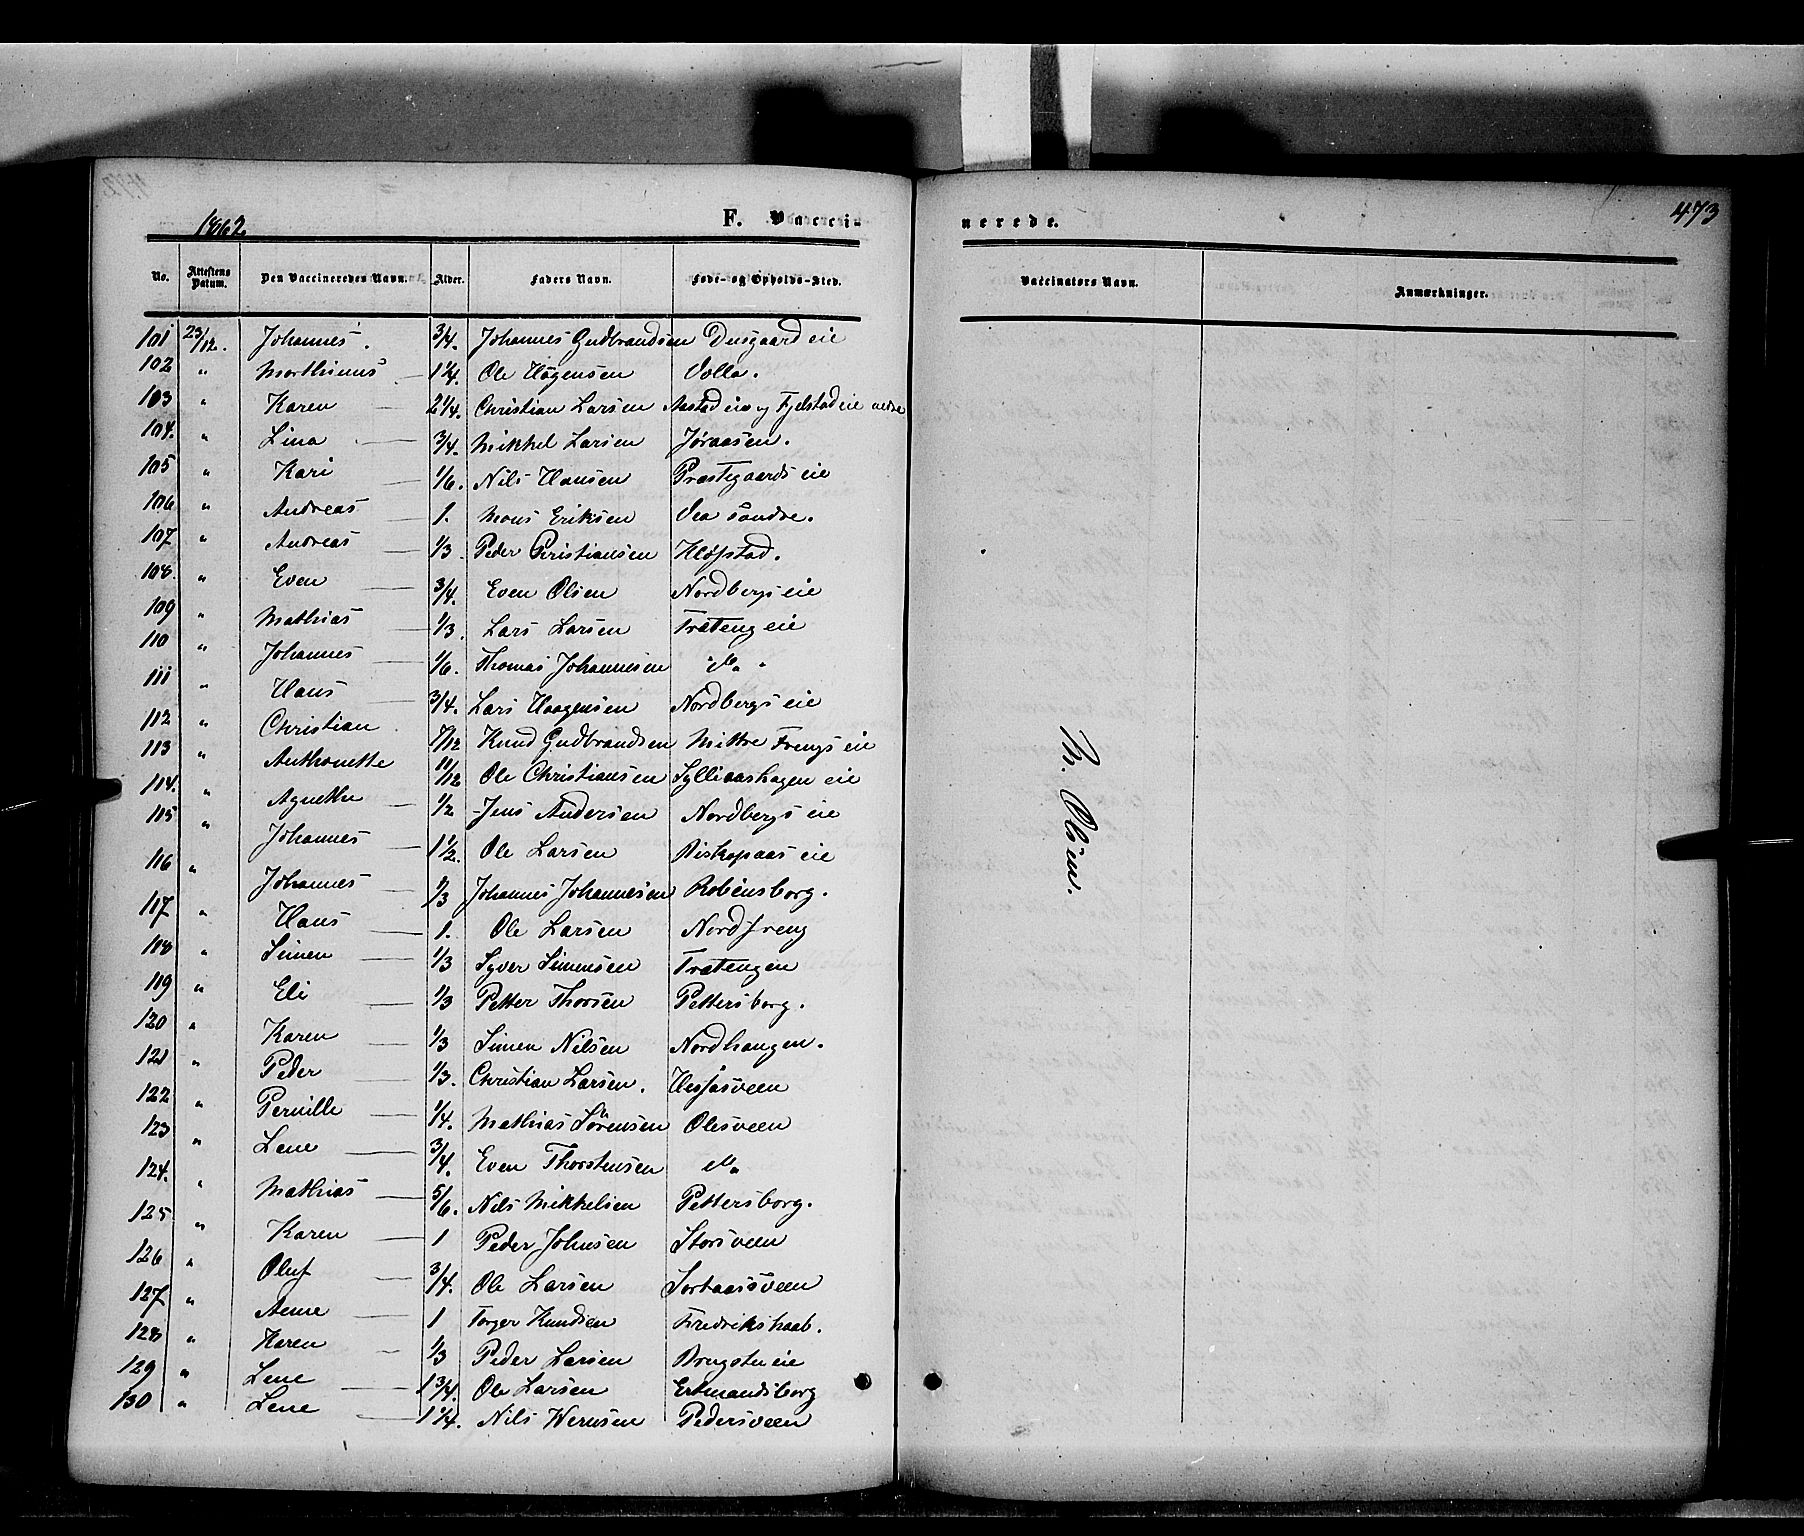 1862
F. Vacci-
nerede.
473
No. Attestens Datum. Den Vaccineredes Navn. Alder. Faders Navn. Føde- og Opholds-Sted.
Vaccinators Navn. Anmærkninger.
101 23/12. Johannes. 3/4. Johannes Gudbrandsen Dusgaard eie
102 " Marthinus 1 1/4. Ole Hagensen Volla.
103 " Karen 2 1/4. Christian Larsen Aastad eie og Fjelstad eie nedre
104. " Lina 3/4. Mikkel Larsen Jøraasen.
105 " Kari 1/6. Nils Hansen Præstegaards eie
106 " Andreas 1. Mons Eriksen Vea søndre.
107 " Andreas 1/3 Peder Christiansen Kløfstad.
108. " Even 3/4. Even Olsen Nordbergs eie
109 " Mathias 1/3. Lars Larsen Træteng eie
110 " Johannes 1/6. Thomas Johannesen " do "
111 " Hans 3/4. Lars Haagensen Nordbergs eie
112 " Christian 7/12 Knud Gudbrandsen Mittre Frengs eie
113 " Anthonette 11/12 Ole Christiansen Sylliaashagen eie
114. " Agnethe 1/2 Jens Andersen Nordbergs eie
115 " Johannes 1 1/2. Ole Larsen Biskopaas eie
116 " Johannes 1/3 Johannes Johannesen Robinsborg.
117 " Hans 1. Ole Larsen Nordfreng
118 " Simen 1/3 Syver Simensen Trætengen
119 " Eli 1/3 Petter Thorsen Pettersborg.
120 " Karen 1/3 Simen Nilsen Nordhaugen.
121 " Peder 1/3. Christian Larsen. Hessasveen
122 " Pernille 1/4. Mathias Sørensen Olesveen
123 " Lene 3/4. Even Thorstensen do
124. " Mathias 5/6. Nils Mikkelsen Pettersborg.
125 " Karen 1 Peder Johnsen Storsveen
126 " Oluf 3/4. Ole Larsen Sorhaassveen
127 " Anne 1 Torger Knudsen Fredrikshaab.
128 " Karen 1/3 Peder Larsen Brugstu eie
129 " Lene 1 3/4. Ole Larsen Ertmandsborg
130 " Lene 1 1/4. Nils Wernsen Pedersveen
Th. Olsen.